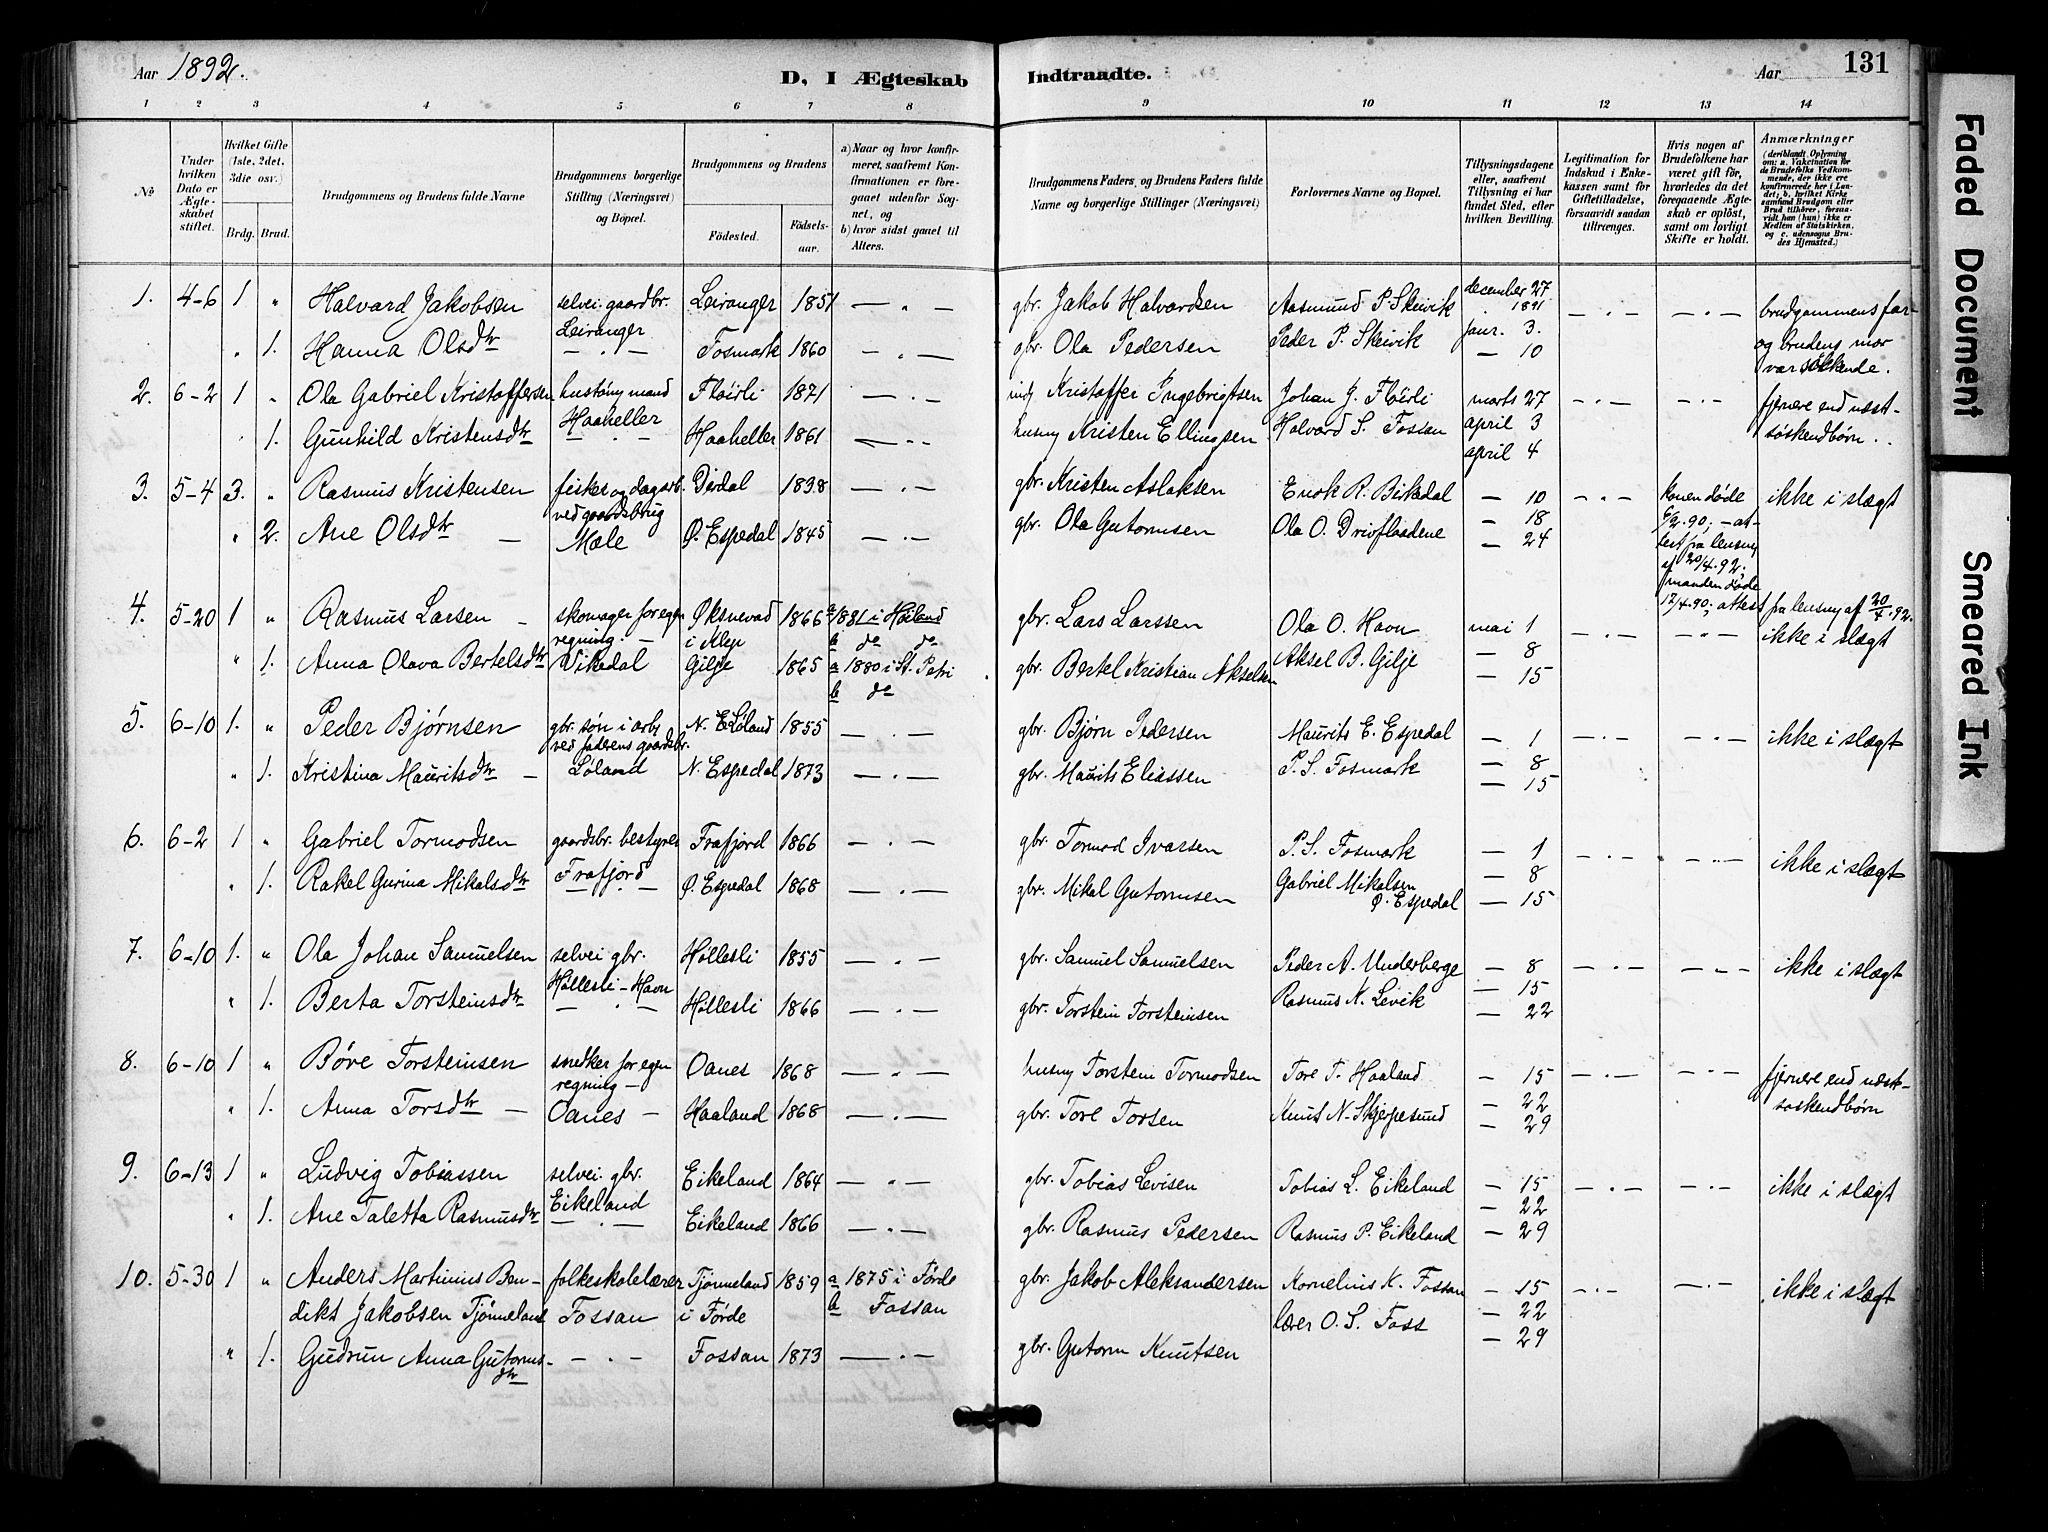 Aar 1892.
D, I Ægteskab Indtraadte.
Aar 131
1 2 3 4 5 6 7 8 9 10 11 12 13 14
No
Under hvilken Dato er Ægteskabet stiftet.
Hvilket Gifte (1ste, 2det, 3die osv.)
Brdg. Brud.
Brudgommens og Brudens fulde Navne
Brudgommens borgerlige Stilling (Næringsvei) og Bopæl.
Brudgommens og Brudens
Födested. Födselsaar.
a) Naar og hvor konfirmeret, saafremt Konfirmationen er foregaaet udenfor Sognet, og
b) hvor sidst gaaet til Alters.
Brudgommens Faders, og Brudens Faders fulde Navne og borgerlige Stillinger (Næringsvei)
Forlovernes Navne og Bopæl.
Tillysningsdagene eller, saafremt Tillysning ei har fundet Sted, efter hvilken Bevilling.
Legitimation for Indskud i Enkekassen samt for Giftetilladelse, forsaavidt saadan tiltrænges.
Hvis nogen af Brudefolkene har været gift för, hvorledes da det foregaaende Ægteskab er oplöst, samt om lovligt Skifte er holdt.
Anmærkninger (deriblandt Oplysning om: a. Vakcination for de Brudefolks Vedkommende, der ikke ere konfirmerede her i Landet; b. hvilket Kirkesamfund Brudgom eller Brud tilhörer, forsaavidt han (hun) ikke er Medlem af Statskirken, og c. udensogns Brudes Hjemsted.)
1. 4-6 1 " Halvard Jakobsen selvei. gaardbr. Leiranger 1851 — " — gbr. Jakob Halvardsen Aasmund P. Skeivik december 27 1891 — . — — . — brudgommens far
Leiranger janr. 3. og brudens mor
" 1. Hanna Olsdtr — . — Fosmark 1860 — . — gbr. Ola Pedersen Peder P. Skeivik — 10 var søskende.
2. 6-2 1 " Ola Gabriel Kristoffersen Fløirli 1871 — . — Kristoffer Ingebrigtsen Johan J. Fløirli marts 27 — . — — . — fjernere end næst-
Haaheller
" 1. Gunhild Kristensdtr — . — Haaheller 1861 — . — husmy Kristen Ellingsen Halvard S. Fossan april 3 søskendbørn.
april 4
3. 5-4 3. " Rasmus Kristensen fisker og dagarb. Dirdal 1838 — . — gbr. Kristen Aslaksen Enok R. Birkedal — 10 — . — konen døde ikke i slægt
ved gaardsbrug — 18 6/2 90; - at-
" 2. Ane Olsdtr — Mæle Ø. Espedal 1845 — . — gbr. Ola Gutormsen Ola O. Drivflaadene — 24 test fra lensmy
af 20/4 . 92;
manden døde
17/4 . 90; attest fra lensmy af 20/4 . 92.
4. 5-20 1 " Rasmus Larsen — skomager for egen Øksnevad 1866 a 1881 i Høiland gbr. Lars Larssen Ola O. Havn mai 1 — . — — " — ikke i slægt
regning — i Klep b do do — 8
" 1. Anna Olava Bertelsdtr Vikedal Gilje 1865 a 1880 i St. Petri gbr. Bertel Kristian Akselsen Aksel B. Gilje — 15
b do
5. 6-10 1. " Peder Bjørnsen gbr. søn i arb. 1855 — . — gbr. Bjørn Pedersen Maurits E. Espedal — 1 — . — — . — ikke i slægt
ved faderens gaardsbr. — 8
" 1. Kristina Mauritsdtr — Løland N. Espedal 1873 — . — gbr. Maurits Eliassen P. S. Fosmark — 15
6. 6-2 1 " Gabriel Tormodsen gaardsbr. bestyrer Frafjord 1866 — . — gbr. Tormod Ivarsen P. S. Fosmark — 1 — . — — . — ikke i slægt
Frafjord — 8
" 1. Rakel Gurina Mikalsdtr — . — Ø. Espedal 1868 — . — gbr. Mikal Gutormsen Gabriel Mikalsen Ø. Espedal — 15
7. 6-10 1. " Ola Johan Samuelsen selvei gbr. Høllesli 1855 — . — gbr. Samuel Samuelsen Peder A. Underberge — 8 — . — — . — ikke i slægt
Høllesli - Havn — 15
" 1. Berta Torsteinsdtr — . — Høllesli 1866 — . — gbr. Torstein Torsteinsen Rasmus N. Levik — 22
8. 6-10 1 " Børe Torsteinsen snedker for egen Oanes 1868 — . — husmy Torstein Tormodsen Tore T. Haaland — 15 — . — — . — fjernere end næst-
regning — — 22 søskendbørn
" 1. Anna Torsdtr — Oanes — Haaland 1868 — . — gbr. Tore Torsen Knut N. Skjerpesund — 29
9. 6-13 1 " Ludvig Tobiassen selvei. gbr. Eikeland 1864 — " — gbr. Tobias Levisen Tobias L. Eikeland — 15 — . — — . — ikke i slægt
Eikeland — 22
" 1. Ane Taletta Rasmusdtr — . — Eikeland 1866 — . — gbr. Rasmus Pedersen Rasmus P. Eikeland — 29
10. 5-30 1 " Anders Martinius Ben- folkeskolelærer Tjønneland 1859 a 1875 i Førde gbr. Jakob Aleksandersen Kornelius K. Fossan — 15 — . — — . — ikke i slægt
dikt Jakobsen Tjønneland Fossan i Førde b Fossan lærer O. S. Foss — 22
" 1. Gudrun Anna Gutorms- — . — Fossan 1873 — . — gbr. Gutorm Knutsen — 29
dtr
Faded Document
Smeared Ink